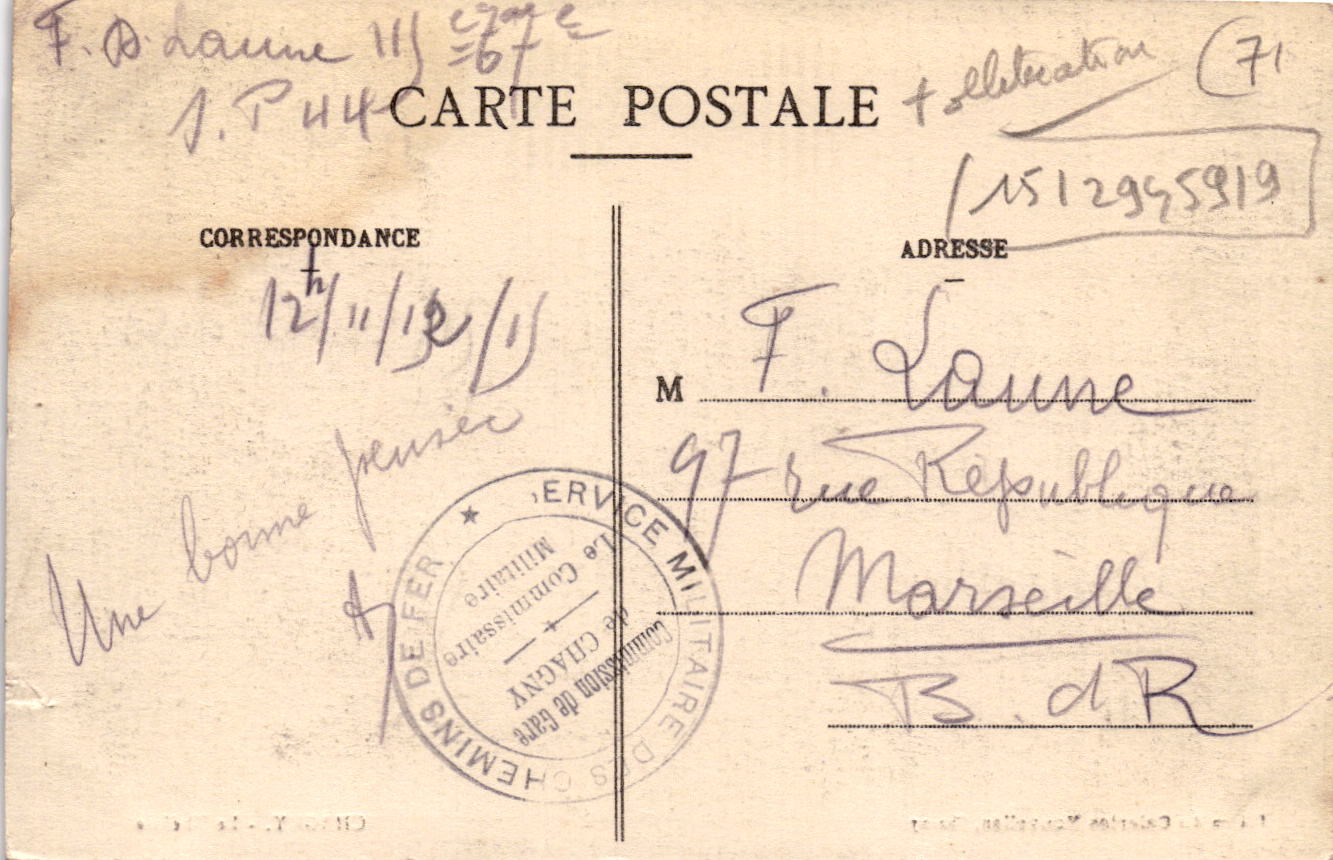 F. D. Laune 115
S. P 44
CARTE POSTALE
+ oblitération
(71
1512945919
CORRESPONDANCE
12h/11/12/15
Une bonne pensée
ADRESSE
M F. Laune
97 rue République
Marseille
B. d R
SERVICE MILITAIRE DES CHEMINS DE FER
Commission de Gare
de CHAGNY
Le Commissaire
Militaire